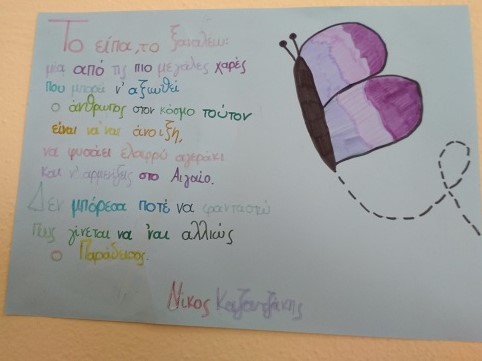 Το είπα, το ξαναλέω:
μια από τις πιο μεγάλες χαρές
που μπορεί ν' αξιωθεί
ο άνθρωπος στον κόσμο τούτον
είναι να 'ναι άνοιξη,
να φυσάει ελαφρύ αγεράκι
και ν' αρμενίζεις στο Αιγαίο.
Δεν μπόρεσα ποτέ να φανταστώ
πως γίνεται να 'ναι αλλιώς
ο Παράδεισος.
Νίκος Καζαντζάκης